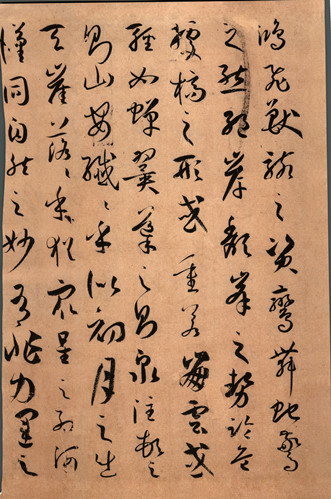 鴻飛獸駭之資鸞舞蛇驚
之態絕岸頹峯之勢臨危
據槁之形或重若崩雲或
輕如蟬翼導之則泉注頓之
則山安纖纖乎似初月之出
天崖落落乎猶眾星之列河
漢同自然之妙有非力運之